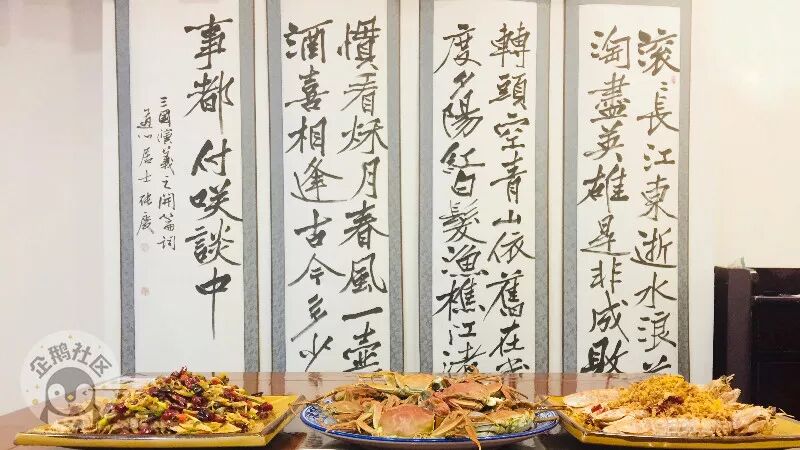 滾〻長江東逝水浪
淘盡英雄是非成敗
轉頭空青山依舊在
度夕陽紅白髮漁樵江渚
慣看秋月春風一壺
酒喜相逢古今多少
事都付咲談中
三國演義之開篇詞
道心居士
企鹅社区